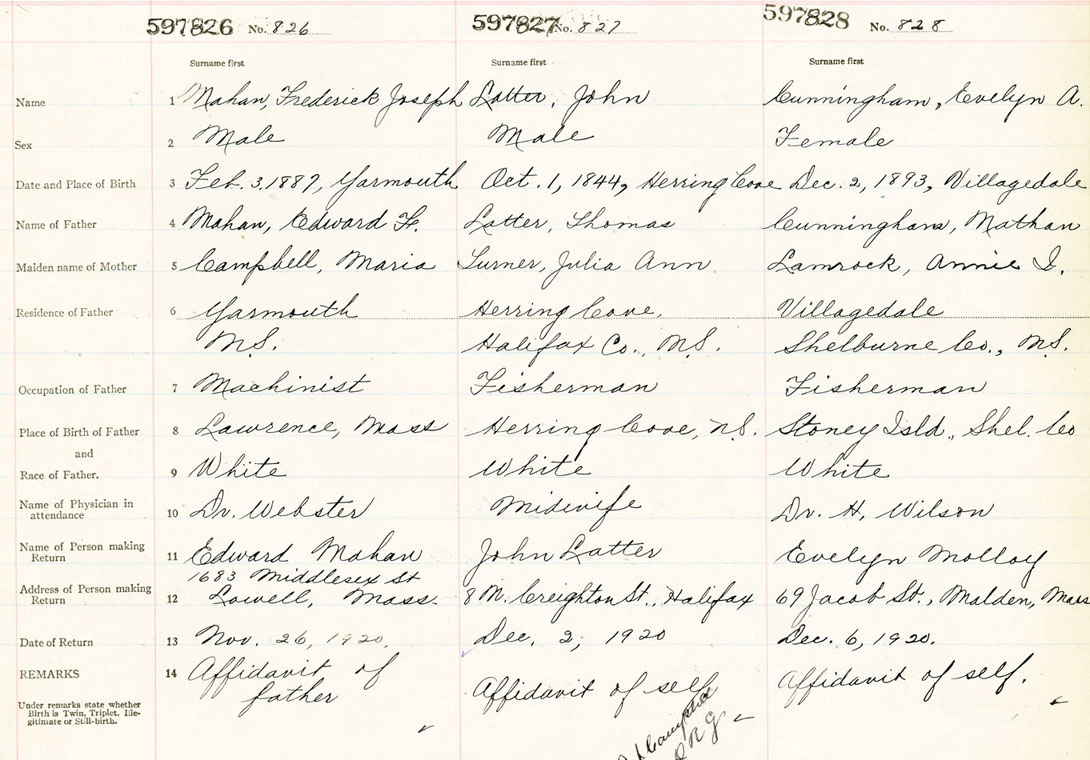 597826 No. 826 597827 No. 827 597828 No. 828
Surname first Surname first Surname first
Name 1 Mahan, Frederick Joseph Latter, John Cunningham, Evelyn A.
Sex 2 Male Male Female
Date and Place of Birth 3 Feb. 3, 1887, Yarmouth Oct. 1, 1844, Herring Cove Dec. 2, 1893, Villagedale
Name of Father 4 Mahan, Edward F. Latter, Thomas Cunningham, Nathan
Maiden name of Mother 5 Campbell, Maria Turner, Julia Ann Lamrock, Annie I.
Residence of Father 6 Yarmouth Herring Cove, Villagedale
N.S. Halifax Co., N.S. Shelburne Co., N.S.
Occupation of Father 7 Machinist Fisherman Fisherman
Place of Birth of Father 8 Lawrence, Mass Herring Cove, N.S. Stoney Isld., Shel. Co
and
Race of Father. 9 White White White
Name of Physician in
attendance 10 Dr. Webster Midwife Dr. H. Wilson
Name of Person making
Return 11 Edward Mahan John Latter Evelyn Molloy
1683 Middlesex St
Address of Person making
Return 12 Lowell, Mass. 8 N. Creighton St., Halifax 69 Jacob St., Malden, Mass
Date of Return 13 Nov. 26, 1920. Dec. 2, 1920 Dec. 6, 1920.
REMARKS 14 Affidavit of Affidavit of self Affidavit of self.
father
Under remarks state whether
Birth is Twin, Triplet, Ille-
gitimate or Still-birth.
D R G